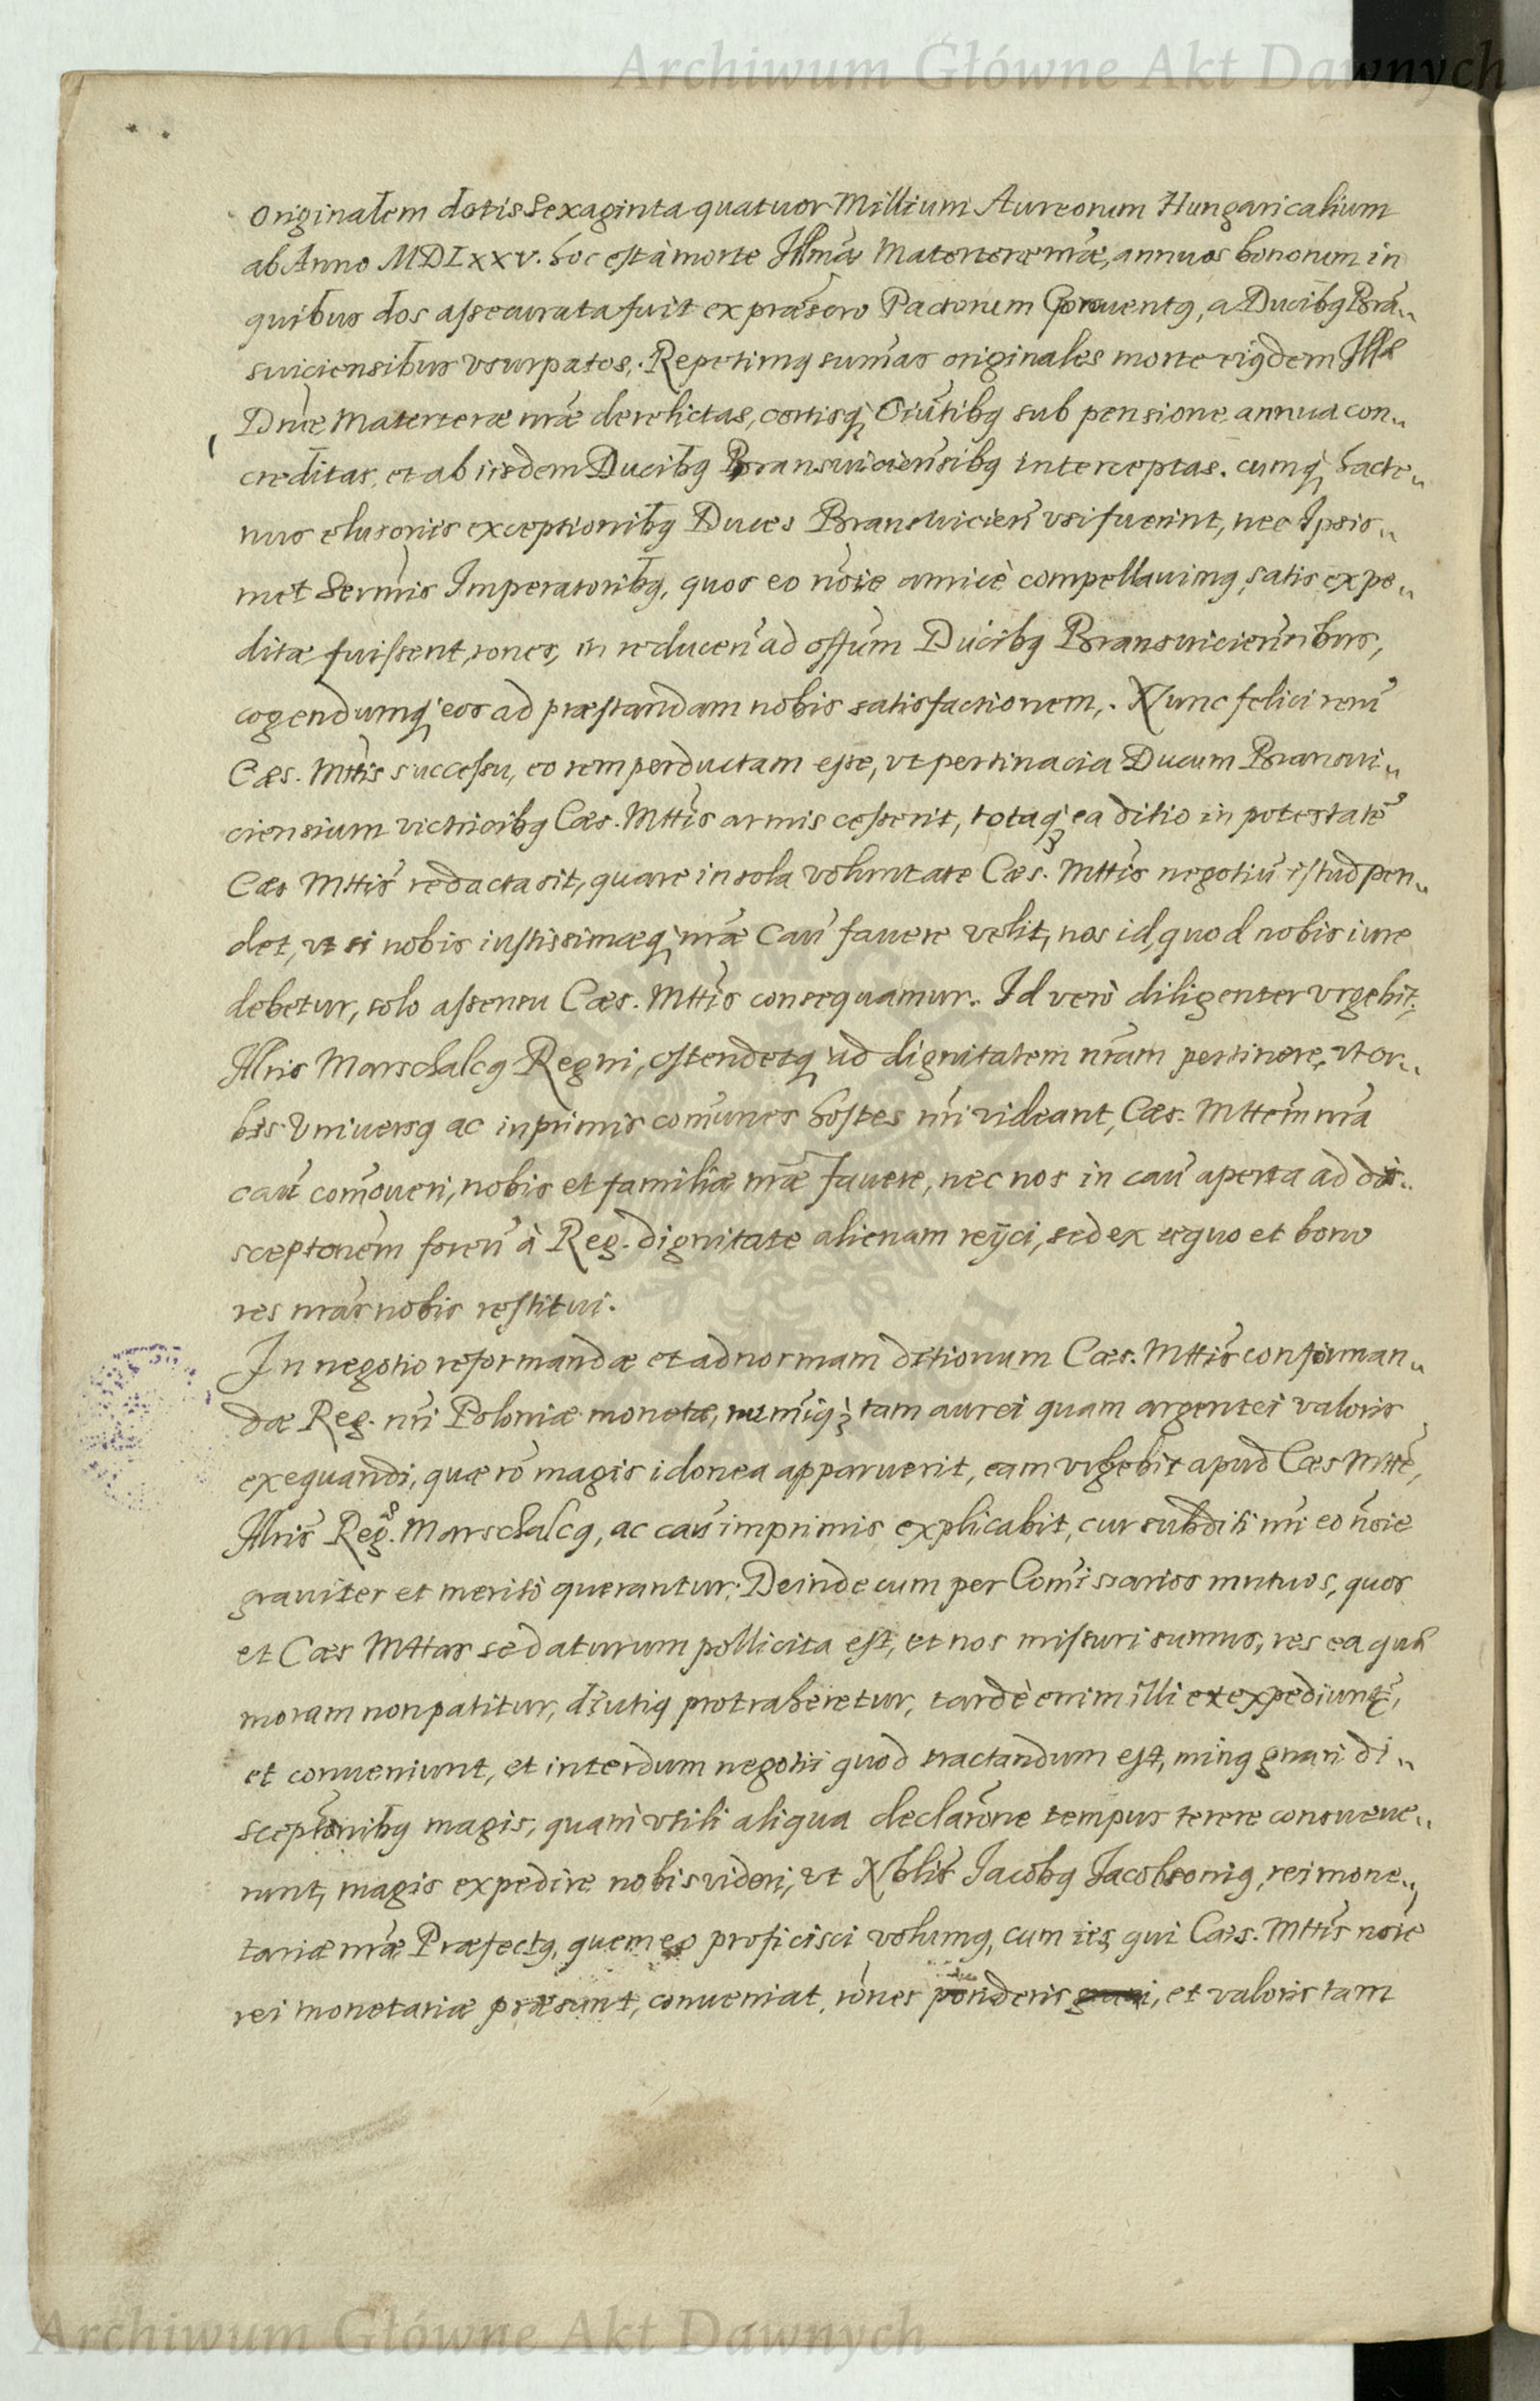 Archiwum Główne Akt Dawnych
originalem dotis sexaginta quatuor Millium Aureorum Hungaricalium
ab Anno MDLXXV. hoc est à morte Illmæ Materteræ nræ, annuos bonorum in
quibus dos assecurata fuit ex præscro Pactorum Prouentq, a Ducibq Brã„
suiciensibus vsurpatos,. Repetimq sum̃as originales morte eiqdem Illæ
Dnæ Materteræ nræ derelictas, certisq Ciũtibq sub pensione annua con„
creditas, et ab iisdem Ducibq Bransuicieñsibq interceptas. cumq hacte„
nus elusorijs exceptionibq Duces Bransuicieñ vsi fuerint, nec Ipsis„
met Sermis Imperatoribq, quos eo noĩe amicè compellauimq, satis expe„
ditæ fuissent rones, in reduceñ ad offum Ducibq Bransuicieñsibus,
cogendumq eos ad præstandam nobis satisfactionem,. Nunc felici rerũ
Cæs. Mttis successu, eo rem perductam esse, vt pertinacia Ducum Bransui„
ciensium victricibq Cæs. Mttis armis cesserit, totaq ea ditio in potestatẽ
Cæs Mttis redacta sit, quare in sola voluntate Cæs. Mttis negotiũ istud pen„
det, vt si nobis iustissimæq nræ Cau͠ fauere velit, nos id, quod nobis iure
debetur, solo assensu Cæs. Mttis consequamur. Id verò diligenter vrgebit
Illris Marschalcq Regni, ostendetq ad dignitatem nram pertinere, vt or„
bis vniuersq ac inprimis com̃unes hostes nri videant, Cæs. Mttem nra
cau͠ com̃oueri, nobis et familiæ nræ fauere, nec nos in cau͠ aperta ad dis„
sceptonem foreñ à Reg. dignitate alienam reijci, sed ex æquo et bono
res nras nobis restitui.
In negotio reformandæ et ad normam ditionum Cæs. Mttis conforman„
dæ Reg. nri Poloniæ monetæ, num̃iq, tam aurei quam argentei valoris
exequandi, quæ rõ magis idonea apparuerit, eam vrgebit apud Cæs Mttẽ,
Illris Reg. Marschalcq, ac cau͠ imprimis explicabit, cur subditi nri eo noĩe
grauiter et meritò querantur. Deinde cum per Com̃issarios mutuos, quos
et Cæs Mttas se daturum pollicita est, et nos missuri sumus, res ea quæ
moram non patitur, diutiq protraheretur, tardè enim illi et expediunt,
et conueniunt, et interdum negotii quod tractandum est, minq gnari di„
sceptonibq magis, quam vtili aliqua declarõne tempus terere consueue„
runt, magis expedire nobis videri, vt Nblis Jacobq Jacobsoniq, rei mone„
tariæ nræ Præfectq, quem eo proficisci volumq, cum ijs qui Cæs. Mttis noĩe
rei monetariæ præsunt, conueniat, rõnes ponderis, et valoris tam
Archiwum Główne Akt Dawnych